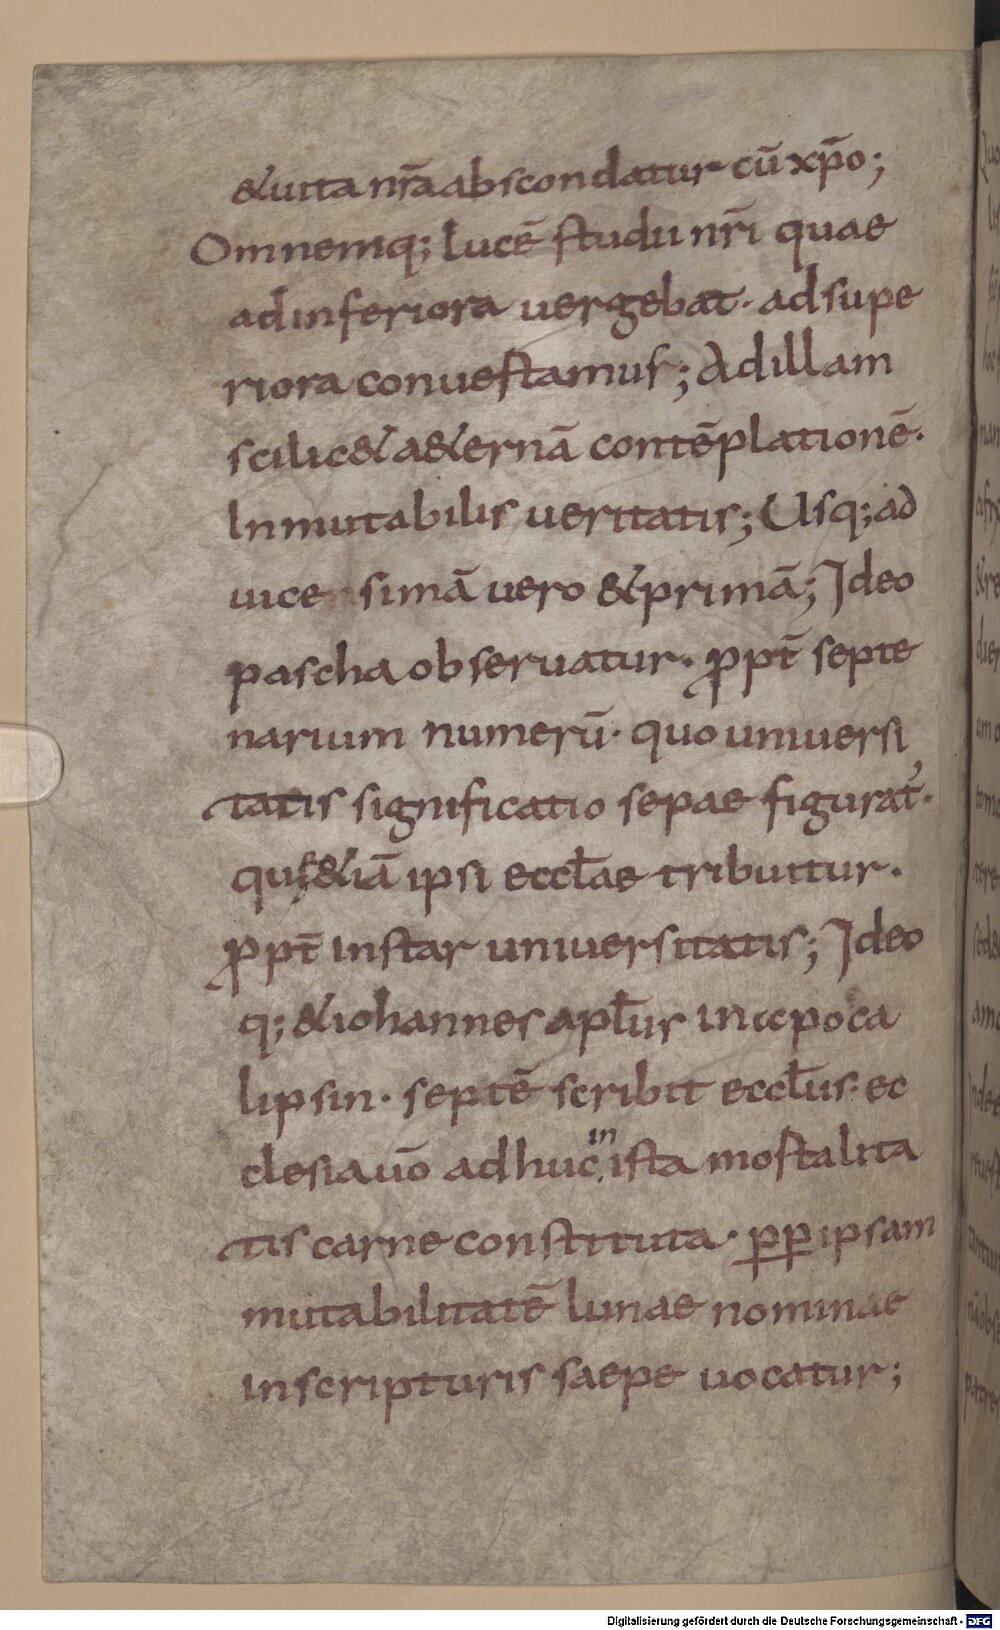 &uita nr̄a abscondatur cū xp̄o;
Omnemq; lucē studii nr̄i quae
ad inferiora uergebat· ad supe
riora conuestamus; Ad illam
scilic& a&ernā contēplationē·
Inmutabilis ueritatis; Usq; ad
uice simā uero & primā; Ideo
pascha obseruatur· ꝓpt̄ septe
narium numerū· quo uniuersi
tatis significatio sepae figurat᷑·
qui &iā ipsi eccl̄ae tribuitur·
ꝓpt̄ instar uniuersitatis; Ideo
q; & iohannes apl̄us in icpoca
lipsin· septē scribit eccl̄us· ec
clesia uō adhuc, in ista mostalita
tis carne constituta· ꝑꝑ ipsam
mutabilitatē lunae nominae
in scripturis saepe uocatur;
Digitalisierung gefördert durch die Deutsche Forschungsgemeinschaft - DFG